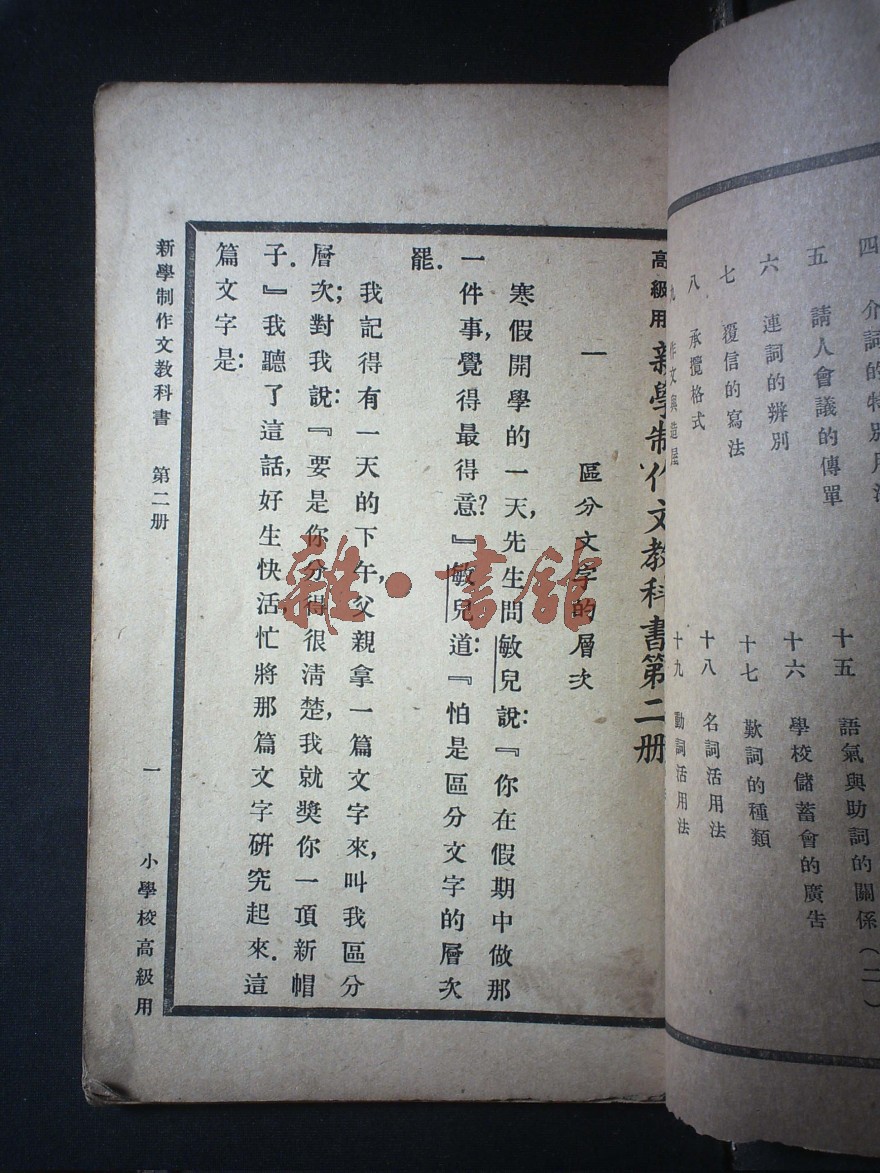 四　介詞的特別用法
五　請人會議的傳單
六　連詞的辨別
七　覆信的寫法
八　承攬格式
九　作文與造屋
十五　語氣與助詞的關係(二)
十六　學校儲蓄會的廣告
十七　歎詞的種類
十八　名詞活用法
十九　動詞活用法
高級用新學制作文教科書第二册
一　區分文字的層次
寒假開學的一天,先生問敏兒說:『你在假期中做那
一件事,覺得最得意?』敏兒道:『怕是區分文字的層次
罷.
我記得有一天的下午,父親拿一篇文字來,叫我區分
層次;對我說:『要是你分得很清楚,我就獎你一頂新帽
子.』我聽了這話,好生快活,忙將那篇文字研究起來.這
篇文字是:
新學制作文教科書　第二册　一　小學校高級用
雜·書館